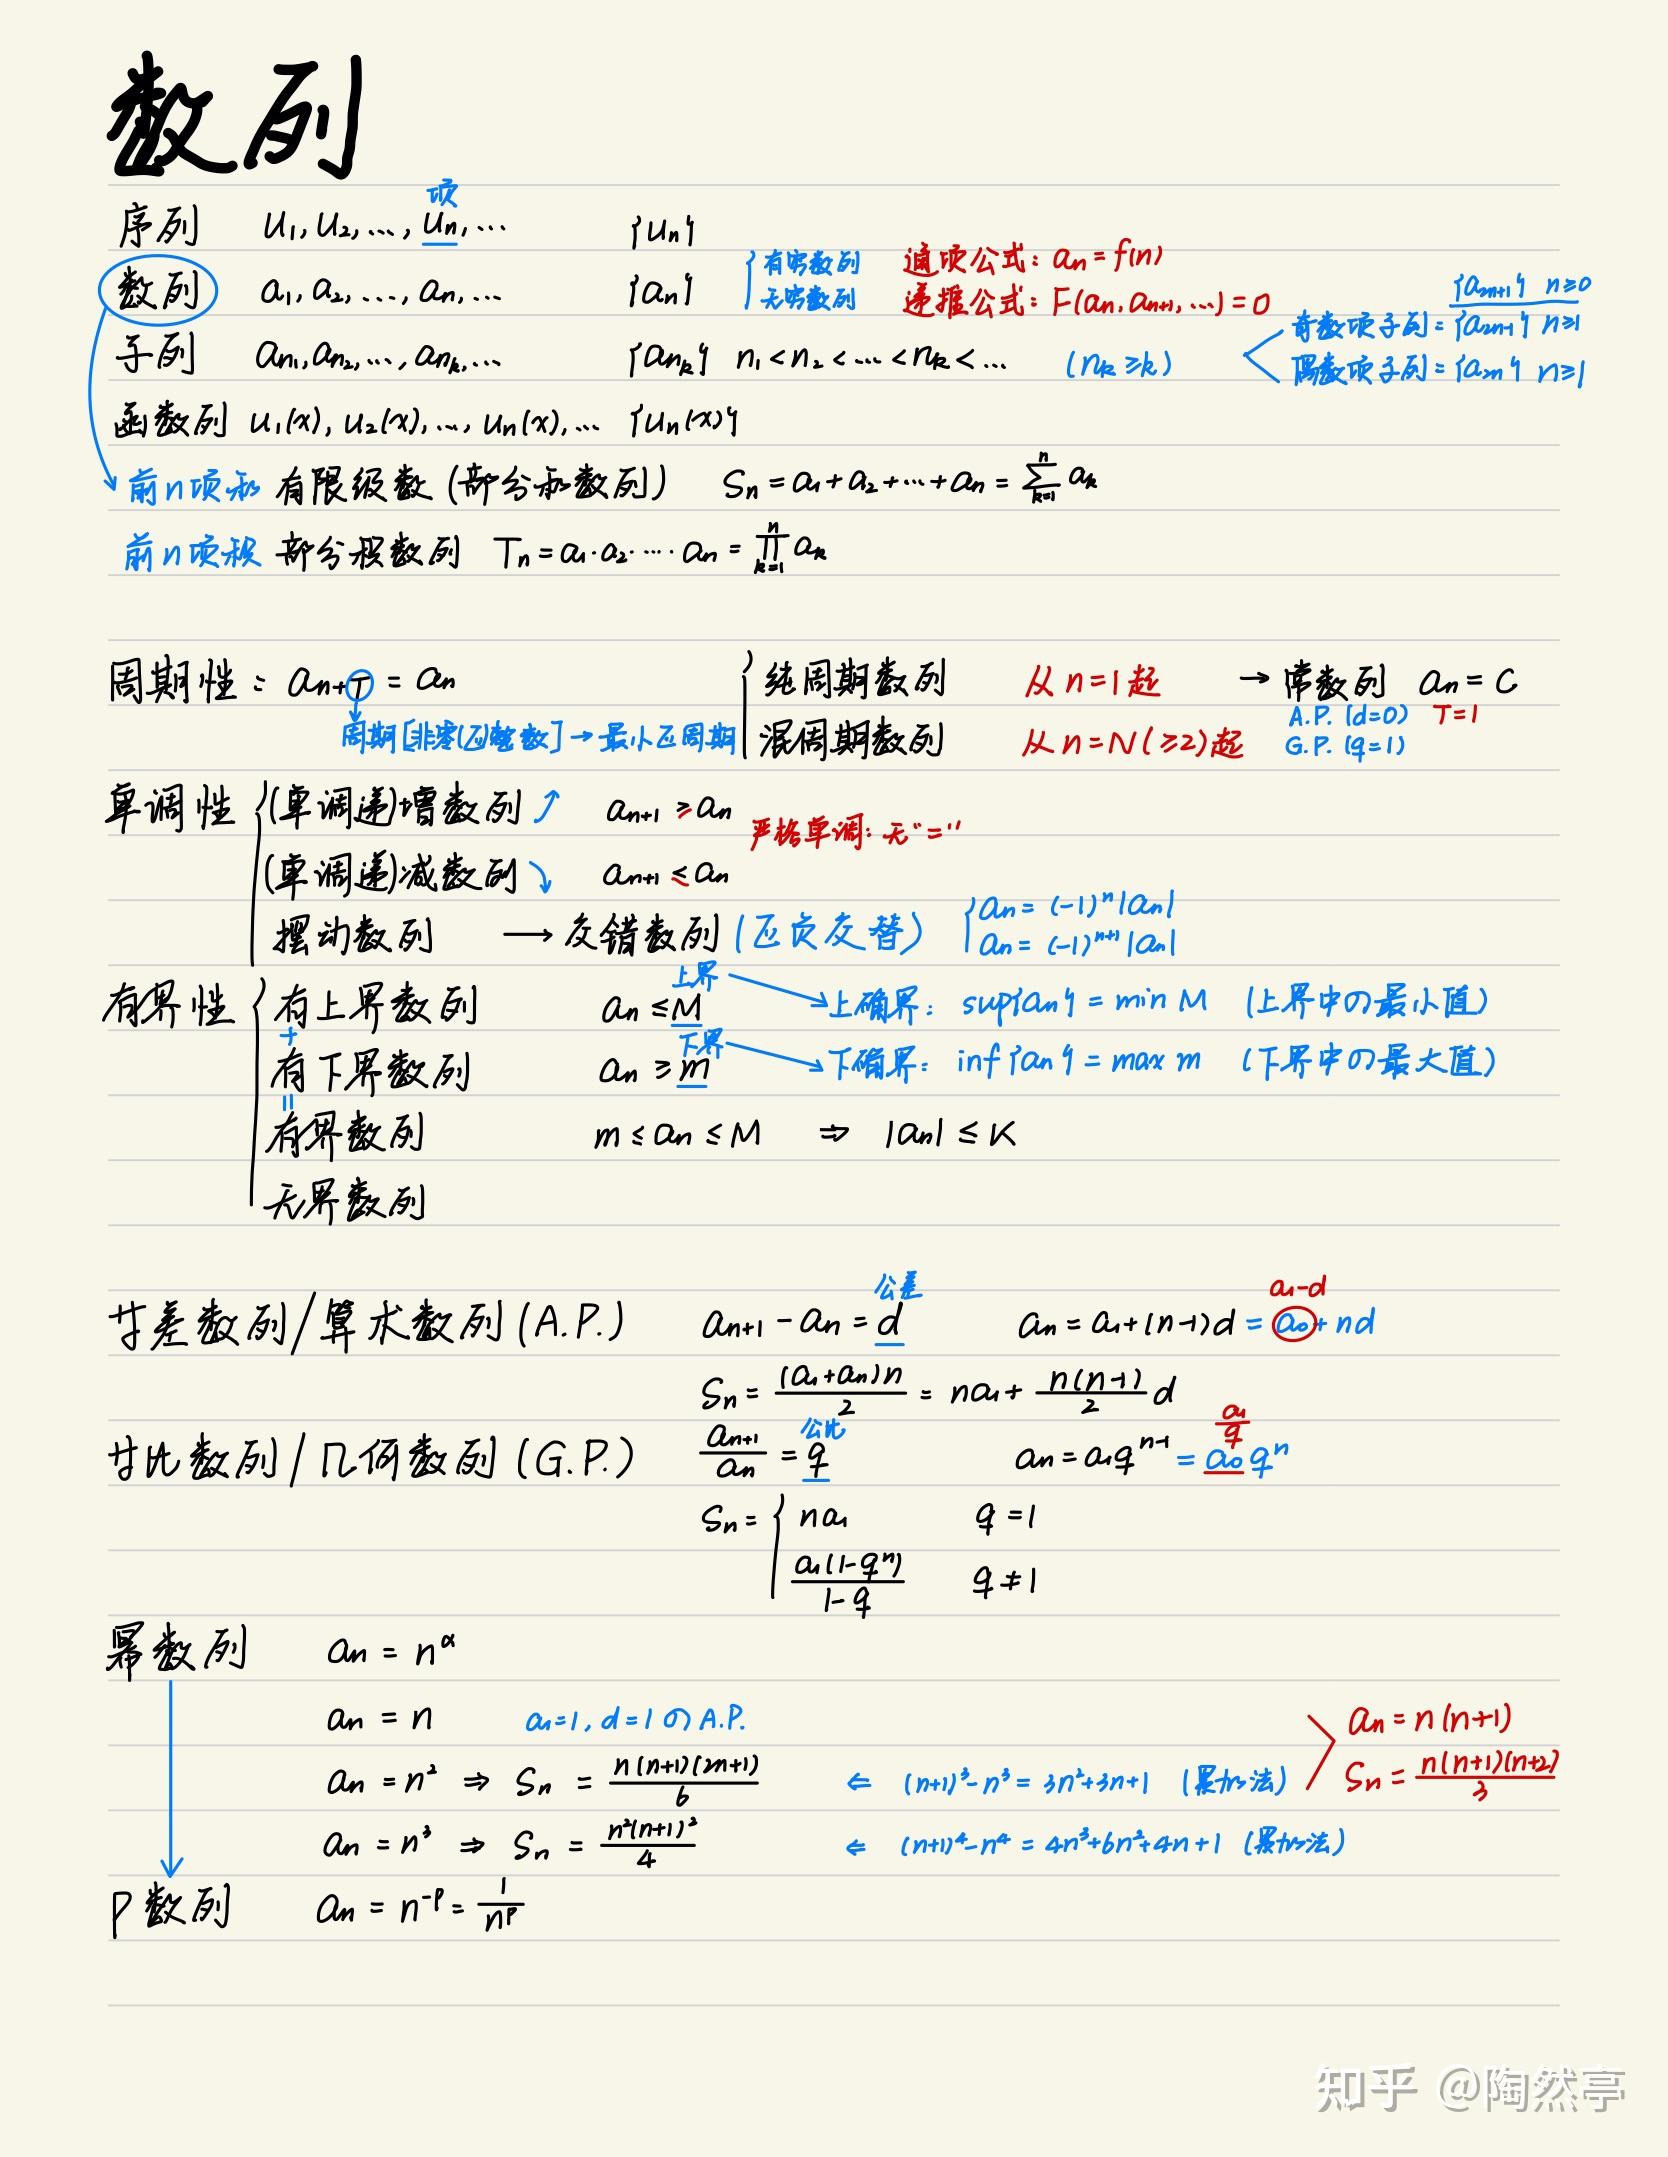 数列
项
序列 u₁, u₂, …, uₙ, … {uₙ}
数列 a₁, a₂, …, aₙ, … {aₙ} { 有穷数列 无穷数列
通项公式: aₙ = f(n)
递推公式: F(aₙ, aₙ₊₁, …) = 0
{a₂ₙ₊₁} n≥0
奇数项子列 = {a₂ₙ₋₁} n≥1
偶数项子列 = {a₂ₙ} n≥1
子列 aₙ₁, aₙ₂, …, aₙₖ, … {aₙₖ} n₁ < n₂ < … < nₖ < … (nₖ ≥ k)
函数列 u₁(x), u₂(x), …, uₙ(x), … {uₙ(x)}
前n项和 有限级数 (部分和数列) Sₙ = a₁ + a₂ + … + aₙ = ∑ₖ₌₁ⁿ aₖ
前n项积 部分积数列 Tₙ = a₁·a₂·…·aₙ = ∏ₖ₌₁ⁿ aₖ
周期性: a_{n+T} = aₙ { 纯周期数列 从 n=1 起 → 常数列 aₙ = C
A.P. (d=0) T=1
周期[非零(正)整数] → 最小正周期 混周期数列 从 n=N(≥2)起 G.P. (q=1)
单调性 { (单调递)增数列 ↗ aₙ₊₁ ≥ aₙ
严格单调: 无"="
(单调递)减数列 ↘ aₙ₊₁ ≤ aₙ
摆动数列 → 交错数列 (正负交替) { aₙ = (-1)ⁿ|aₙ|
aₙ = (-1)ⁿ⁺¹|aₙ|
上界
有界性 { 有上界数列 aₙ ≤ M → 上确界: sup{aₙ} = min M (上界中の最小值)
+
下界
有下界数列 aₙ ≥ m → 下确界: inf{aₙ} = max m (下界中の最大值)
=
有界数列 m ≤ aₙ ≤ M ⇒ |aₙ| ≤ K
无界数列
公差 a₁-d
等差数列/算术数列 (A.P.) aₙ₊₁ - aₙ = d aₙ = a₁ + (n-1)d = a₀ + nd
Sₙ = (a₁+aₙ)n/2 = na₁ + n(n-1)/2 d
公比 a₁/q
等比数列/几何数列 (G.P.) aₙ₊₁/aₙ = q aₙ = a₁qⁿ⁻¹ = a₀qⁿ
Sₙ = { na₁ q = 1
a₁(1-qⁿ)/1-q q ≠ 1
幂数列 aₙ = n^α
aₙ = n a₁=1, d=1 の A.P.
aₙ = n(n+1)
aₙ = n² ⇒ Sₙ = n(n+1)(2n+1)/6 ⇐ (n+1)³-n³ = 3n²+3n+1 (累加法)
Sₙ = n(n+1)(n+2)/3
aₙ = n³ ⇒ Sₙ = n²(n+1)²/4 ⇐ (n+1)⁴-n⁴ = 4n³+6n²+4n+1 (累加法)
P数列 aₙ = n^{-p} = 1/n^p
知乎 @陶然亭